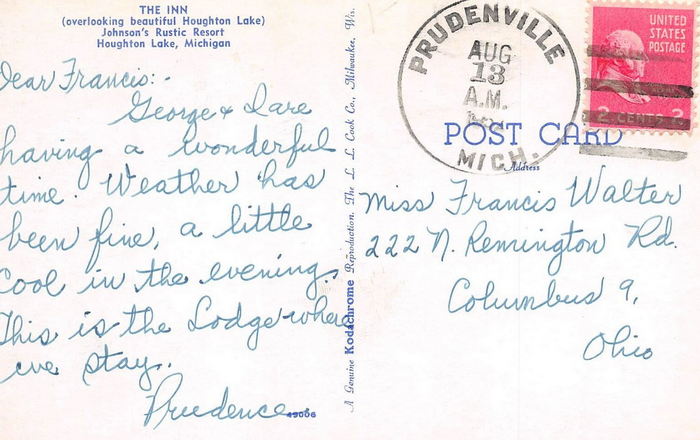 THE INN
(overlooking beautiful Houghton Lake)
Johnson's Rustic Resort
Houghton Lake, Michigan
Dear Francis:-
George & I are
having a wonderful
time. Weather has
been fine, a little
cool in the evening.
This is the Lodge where
we stay..
Prudence
49006
A Genuine Kodachrome Reproduction. The L. L. Cook Co., Milwaukee, Wis.
PRUDENVILLE
AUG
13
A.M.
MICH.
UNITED
STATES
POSTAGE
2 CENTS 2
POST CARD
Address
Miss Francis Walter
222 N. Remington Rd.
Columbus 9,
Ohio